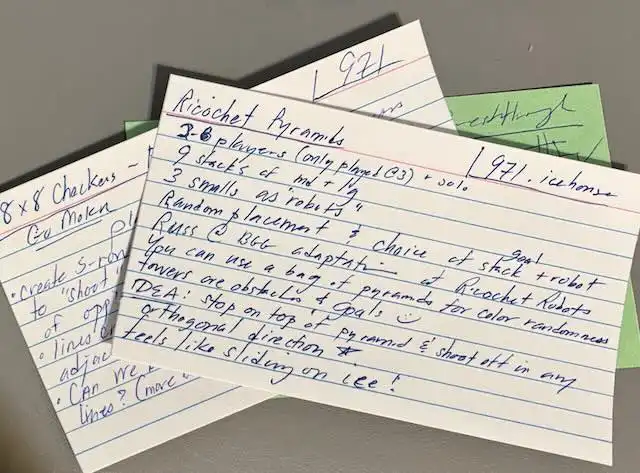 971
Ricochet Pyramids
971.icehouse
2-6 players (only played @3) + solo
9 stacks of md + lg
3 smalls as "robots"
Random placement & choice of goal stack + robot
Russ @ BGG adaptation of Ricochet Robots
You can use a bag of pyramids for color randomness
towers are obstacles & goals
IDEA: stop on top of pyramid & shoot off in any
orthogonal direction *
feels like sliding on ice!
8x8 Checkers -
Go Moku
• Create 5-row
to "shoot"
of opp
• lines
adjac
• Can we
lines? (more